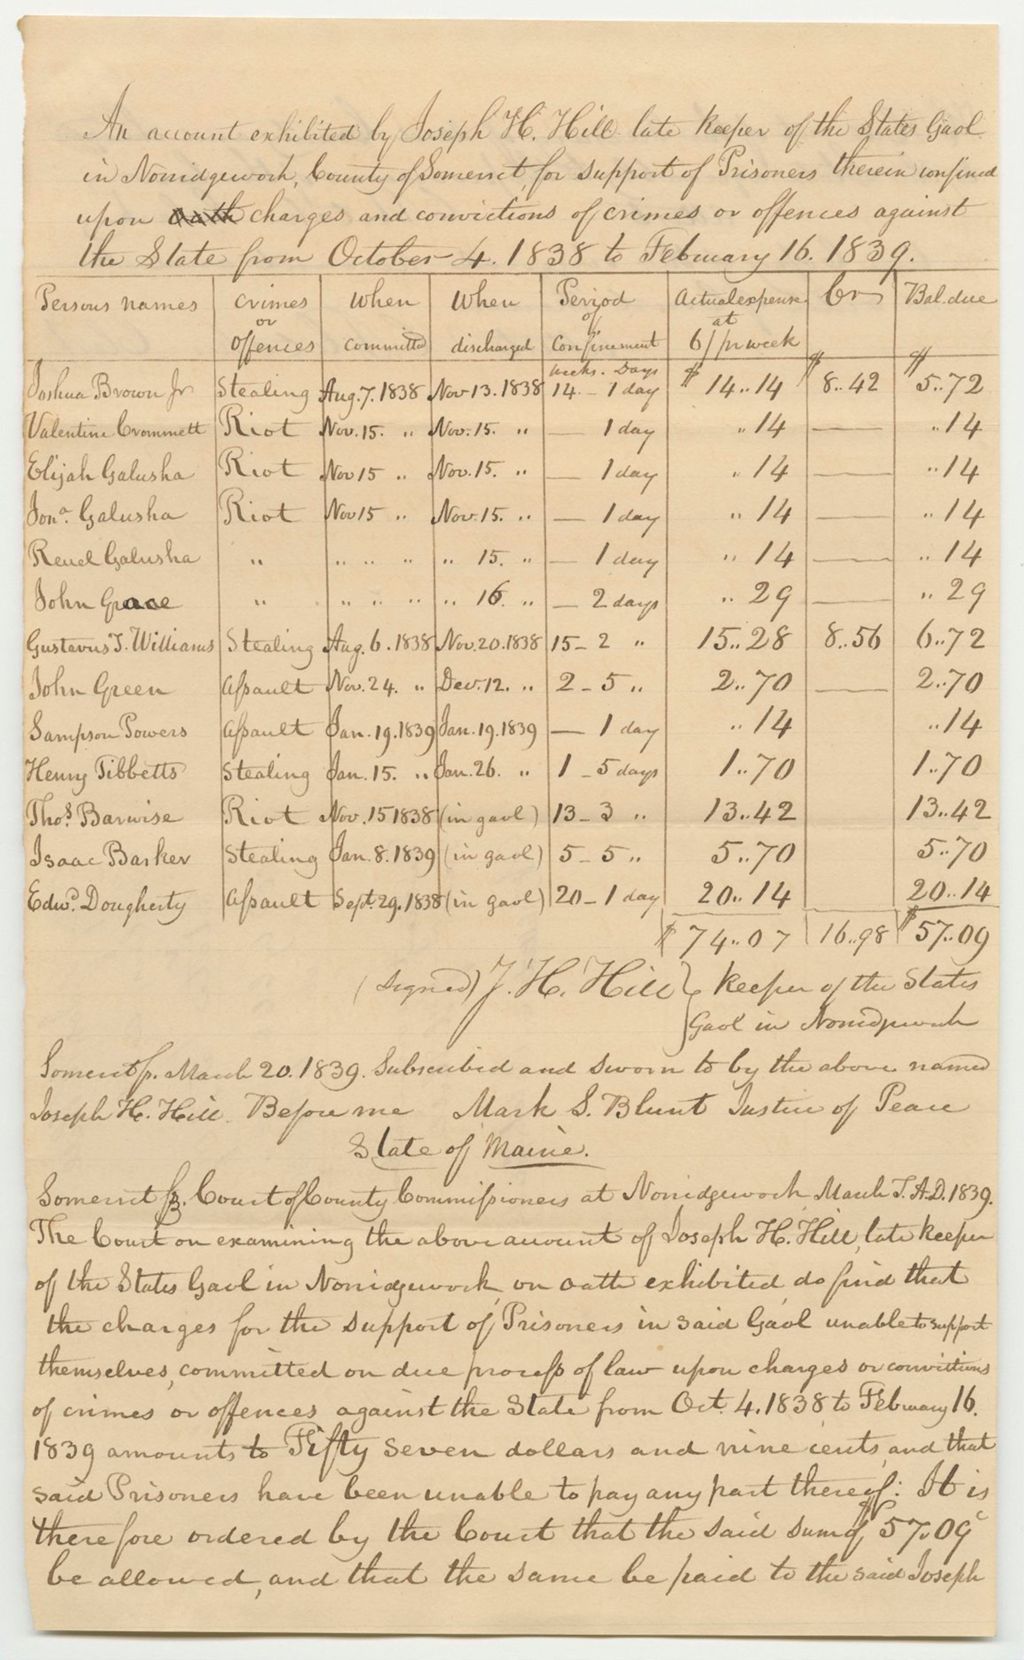 An account exhibited by Joseph H. Hill late keeper of the States Gaol
in Norridgewock, County of Somerset, for support of Prisoners therein confined
upon oath charges and convictions of crimes or offences against
the State from October 4. 1838 to February 16. 1839.
Persons names | crimes or offences | When committed | When discharged | Period of Confinement | Actual expense at 6/ pr week | Cr | Bal. due
weeks. Days
Joshua Brown Jr | Stealing | Aug. 7. 1838 | Nov 13. 1838 | 14 - 1 day | $ 14..14 | $ 8..42 | $ 5..72
Valentine Crommett | Riot | Nov. 15. " | Nov. 15. " | — 1 day | " 14 | — | " 14
Elijah Galusha | Riot | Nov 15 " | Nov. 15. " | — 1 day | " 14 | — | " 14
Jona. Galusha | Riot | Nov 15 " | Nov. 15. " | — 1 day | " 14 | — | " 14
Reuel Galusha | " | " " " | " 15. " | — 1 day | " 14 | — | " 14
John Grace | " | " " " | " 16. " | — 2 days | " 29 | — | " 29
Gustavus T. Williams | Stealing | Aug. 6. 1838 | Nov. 20. 1838 | 15 - 2 " | 15..28 | 8..56 | 6..72
John Green | Assault | Nov. 24. " | Dec. 12. " | 2 - 5 " | 2..70 | — | 2..70
Sampson Powers | Assault | Jan. 19. 1839 | Jan. 19. 1839 | — 1 day | " 14 | " 14
Henry Tibbetts | Stealing | Jan. 15. " | Jan. 26. " | 1 - 5 days | 1..70 | 1..70
Thos. Barwise | Riot | Nov. 15 1838 | (in gaol) | 13 - 3 " | 13..42 | 13..42
Isaac Barker | Stealing | Jan. 8. 1839 | (in gaol) | 5 - 5 " | 5..70 | 5..70
Edwd. Dougherty | Assault | Sept. 29. 1838 | (in gaol) | 20 - 1 day | 20..14 | 20..14
$ 74..07 | 16..98 | $ 57..09
(signed) J. H. Hill } keeper of the States
Gaol in Norridgewock
Somerset ss. March 20. 1839. Subscribed and sworn to by the above named
Joseph H. Hill. Before me Mark S. Blunt Justice of Peace
State of Maine.
Somerset ss. Court of County Commissioners at Norridgewock, March T. A.D. 1839.
The Court on examining the above account of Joseph H. Hill, late keeper
of the States Gaol in Norridgewock, on oath exhibited, do find that
the charges for the support of Prisoners in said Gaol unable to support
themselves, committed on due process of law upon charges or convictions
of crimes or offences against the State from Oct. 4. 1838 to February 16.
1839 amounts to Fifty seven dollars and nine cents, and that
said Prisoners have been unable to pay any part thereof: It is
therefore ordered by the Court that the said sum of $57.09c
be allowed, and that the same be paid to the said Joseph